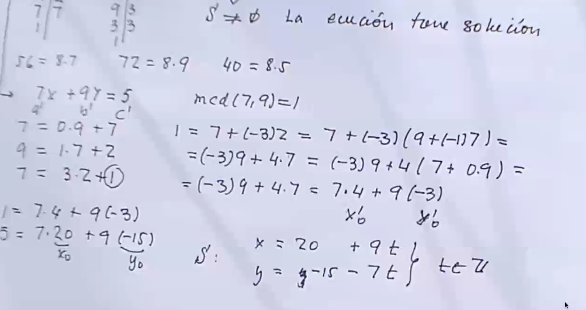 7 | 7 9 | 3
1 | 3 | 3
1
S ≠ ∅ La ecución tene solución
56 = 8.7 72 = 8.9 40 = 8.5
→ 7x + 9y = 5 mcd(7,9)=1
a' b' c'
7 = 0.9 + 7 1 = 7+(-3)2 = 7+(-3)(9+(-1)7) =
9 = 1.7 + 2 =(-3)9 + 4.7 = (-3)9+4(7+0.9) =
7 = 3.2+1 = (-3)9 + 4.7 = 7.4 + 9(-3)
x'0 y'0
1 = 7.4 + 9(-3)
5 = 7.20 + 9(-15)
x0 y0
S: x = 20 + 9t
y = -15 - 7t } t∈Z